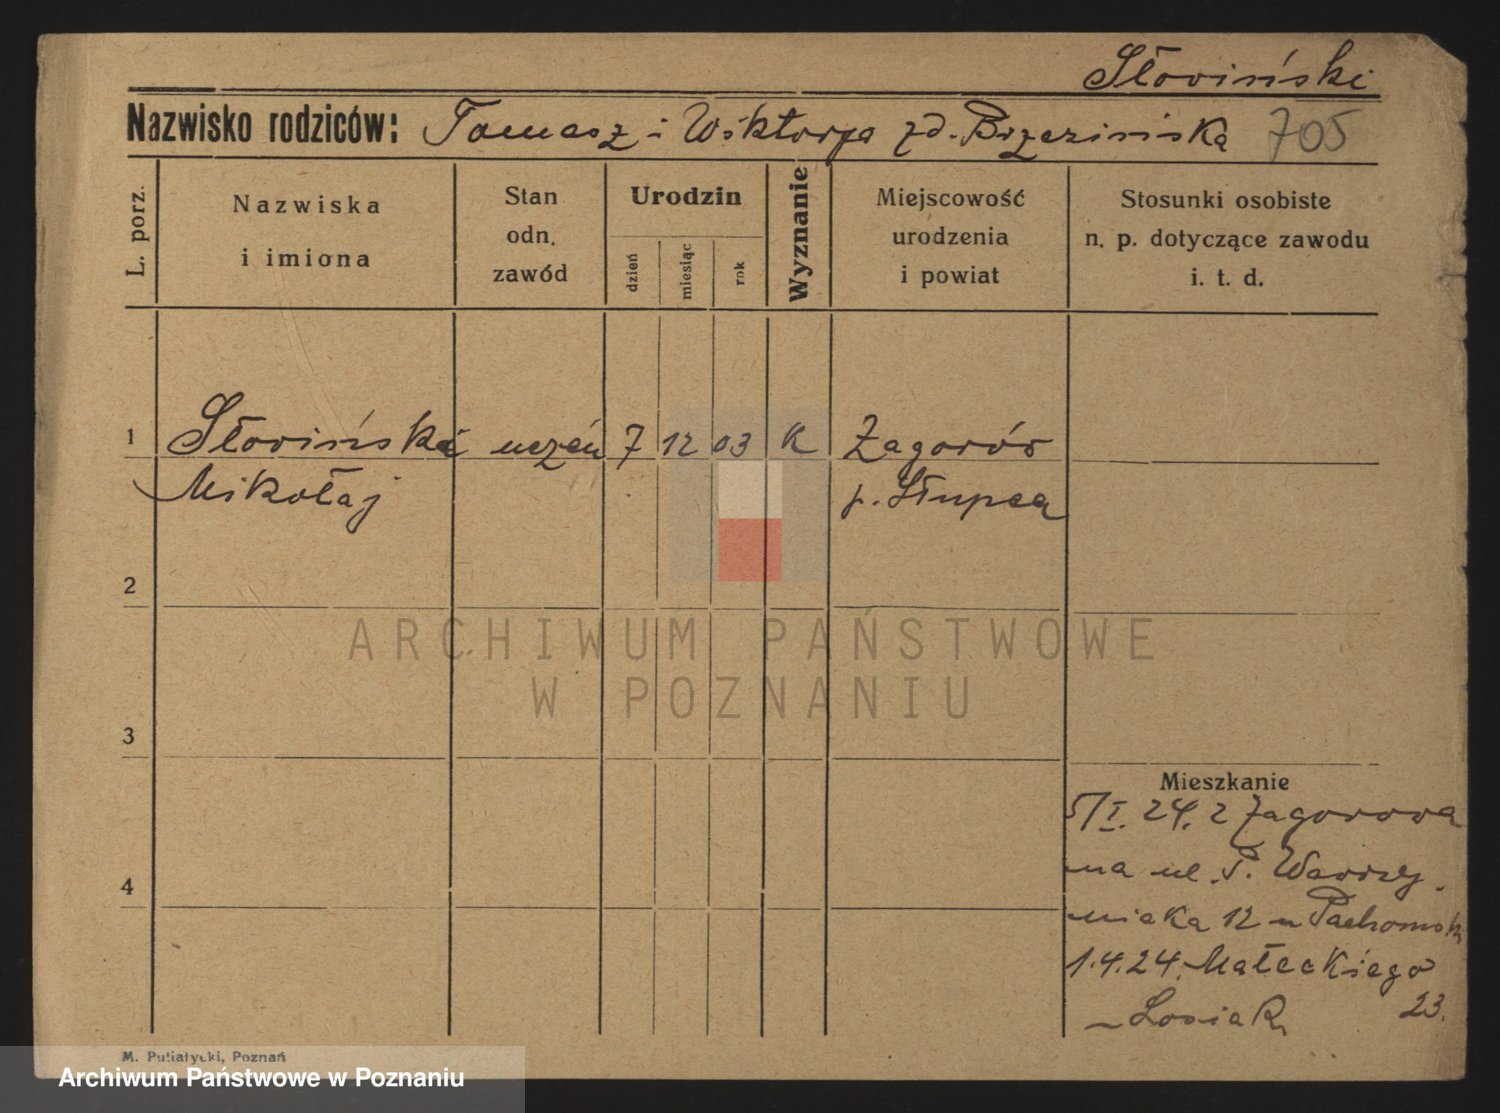 Słowiński
Nazwisko rodziców: Tomasz i Wiktorja zd. Brzezińska 705
L. porz.
Nazwiska i imiona
Stan odn. zawód
Urodzin
dzień
miesiąc
rok
Wyznanie
Miejscowość urodzenia i powiat
Stosunki osobiste n. p. dotyczące zawodu i. t. d.
1 Słowiński uczeń 7 12 03 K Zagorów
Mikołaj p. Słupca
2
ARCHIWUM PAŃSTWOWE
W POZNANIU
3
Mieszkanie
5/I. 24. z Zagorowa
4
na ul. P. Wawrzy-
niaka 12 u
1.4.24. Małeckiego
23.
u Łosiak
M. Putiatycki, Poznań
Archiwum Państwowe w Poznaniu